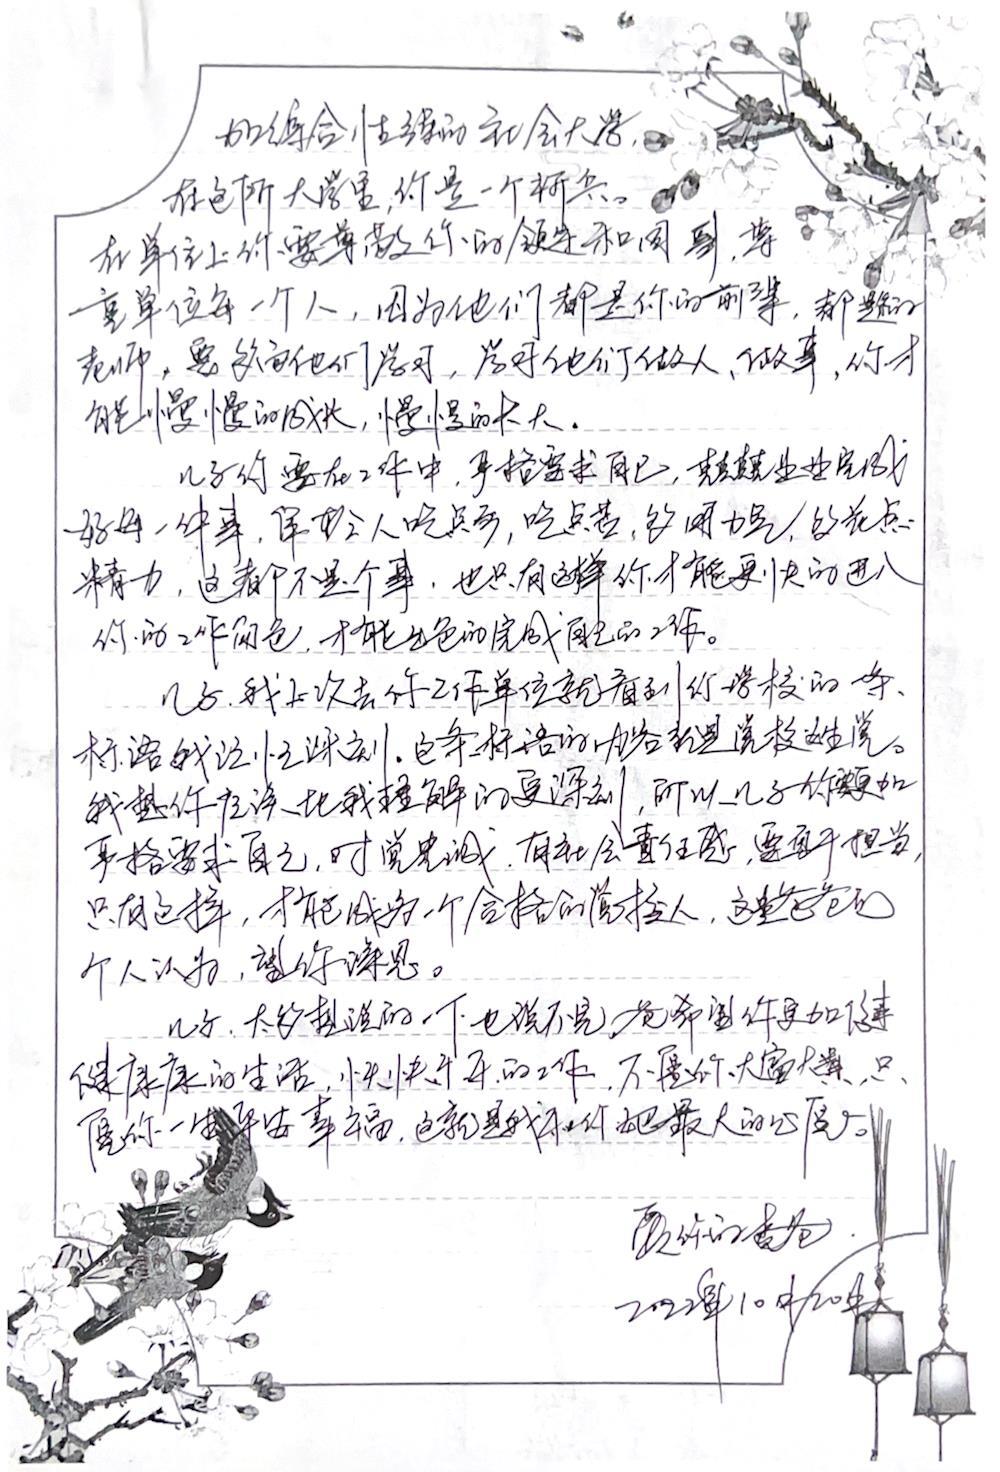 加综合性强的社会大学,
在这所大学里,你是一个新兵。
在单位上你要尊敬你的领导和同事,尊
重单位每一个人,因为他们都是你的前辈,都是你的
老师,要多向他们学习,学习他们做人、做事,你才
能慢慢的成长,慢慢的长大.
儿子你要在工作中,严格要求自己,兢兢业业完成
好每一件事, 人吃点亏,吃点苦,多用力气/多花点
精力,这都不是个事,也只有这样你才能更快的进入
你的工作角色,才能出色的完成自己的工作。
儿子.我上次去你工作单位就看到你学校的一条、
标语我记忆深刻.这条标语的内容就是党校姓党。
我想你应该比我理解的更深刻,所以儿子你要更加
严格要求自己,对党忠诚.有社会责任感,要勇于担当,
只有这样,才能成为一个合格的党校人,这是爸爸的
个人认为,望你深思。
儿子.太多想说的一下也说不完,爸希望你更加健健
康康的生活,快快乐乐的工作,不愿你大富大贵,只
愿你一生平安幸福,这就是我和你妈最大的心愿。
爱你的爸爸
2022年10月20日